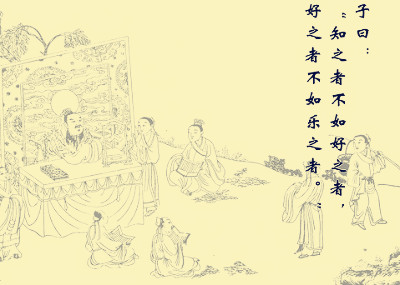 子曰：
“知之者不如好之者，
好之者不如乐之者。”